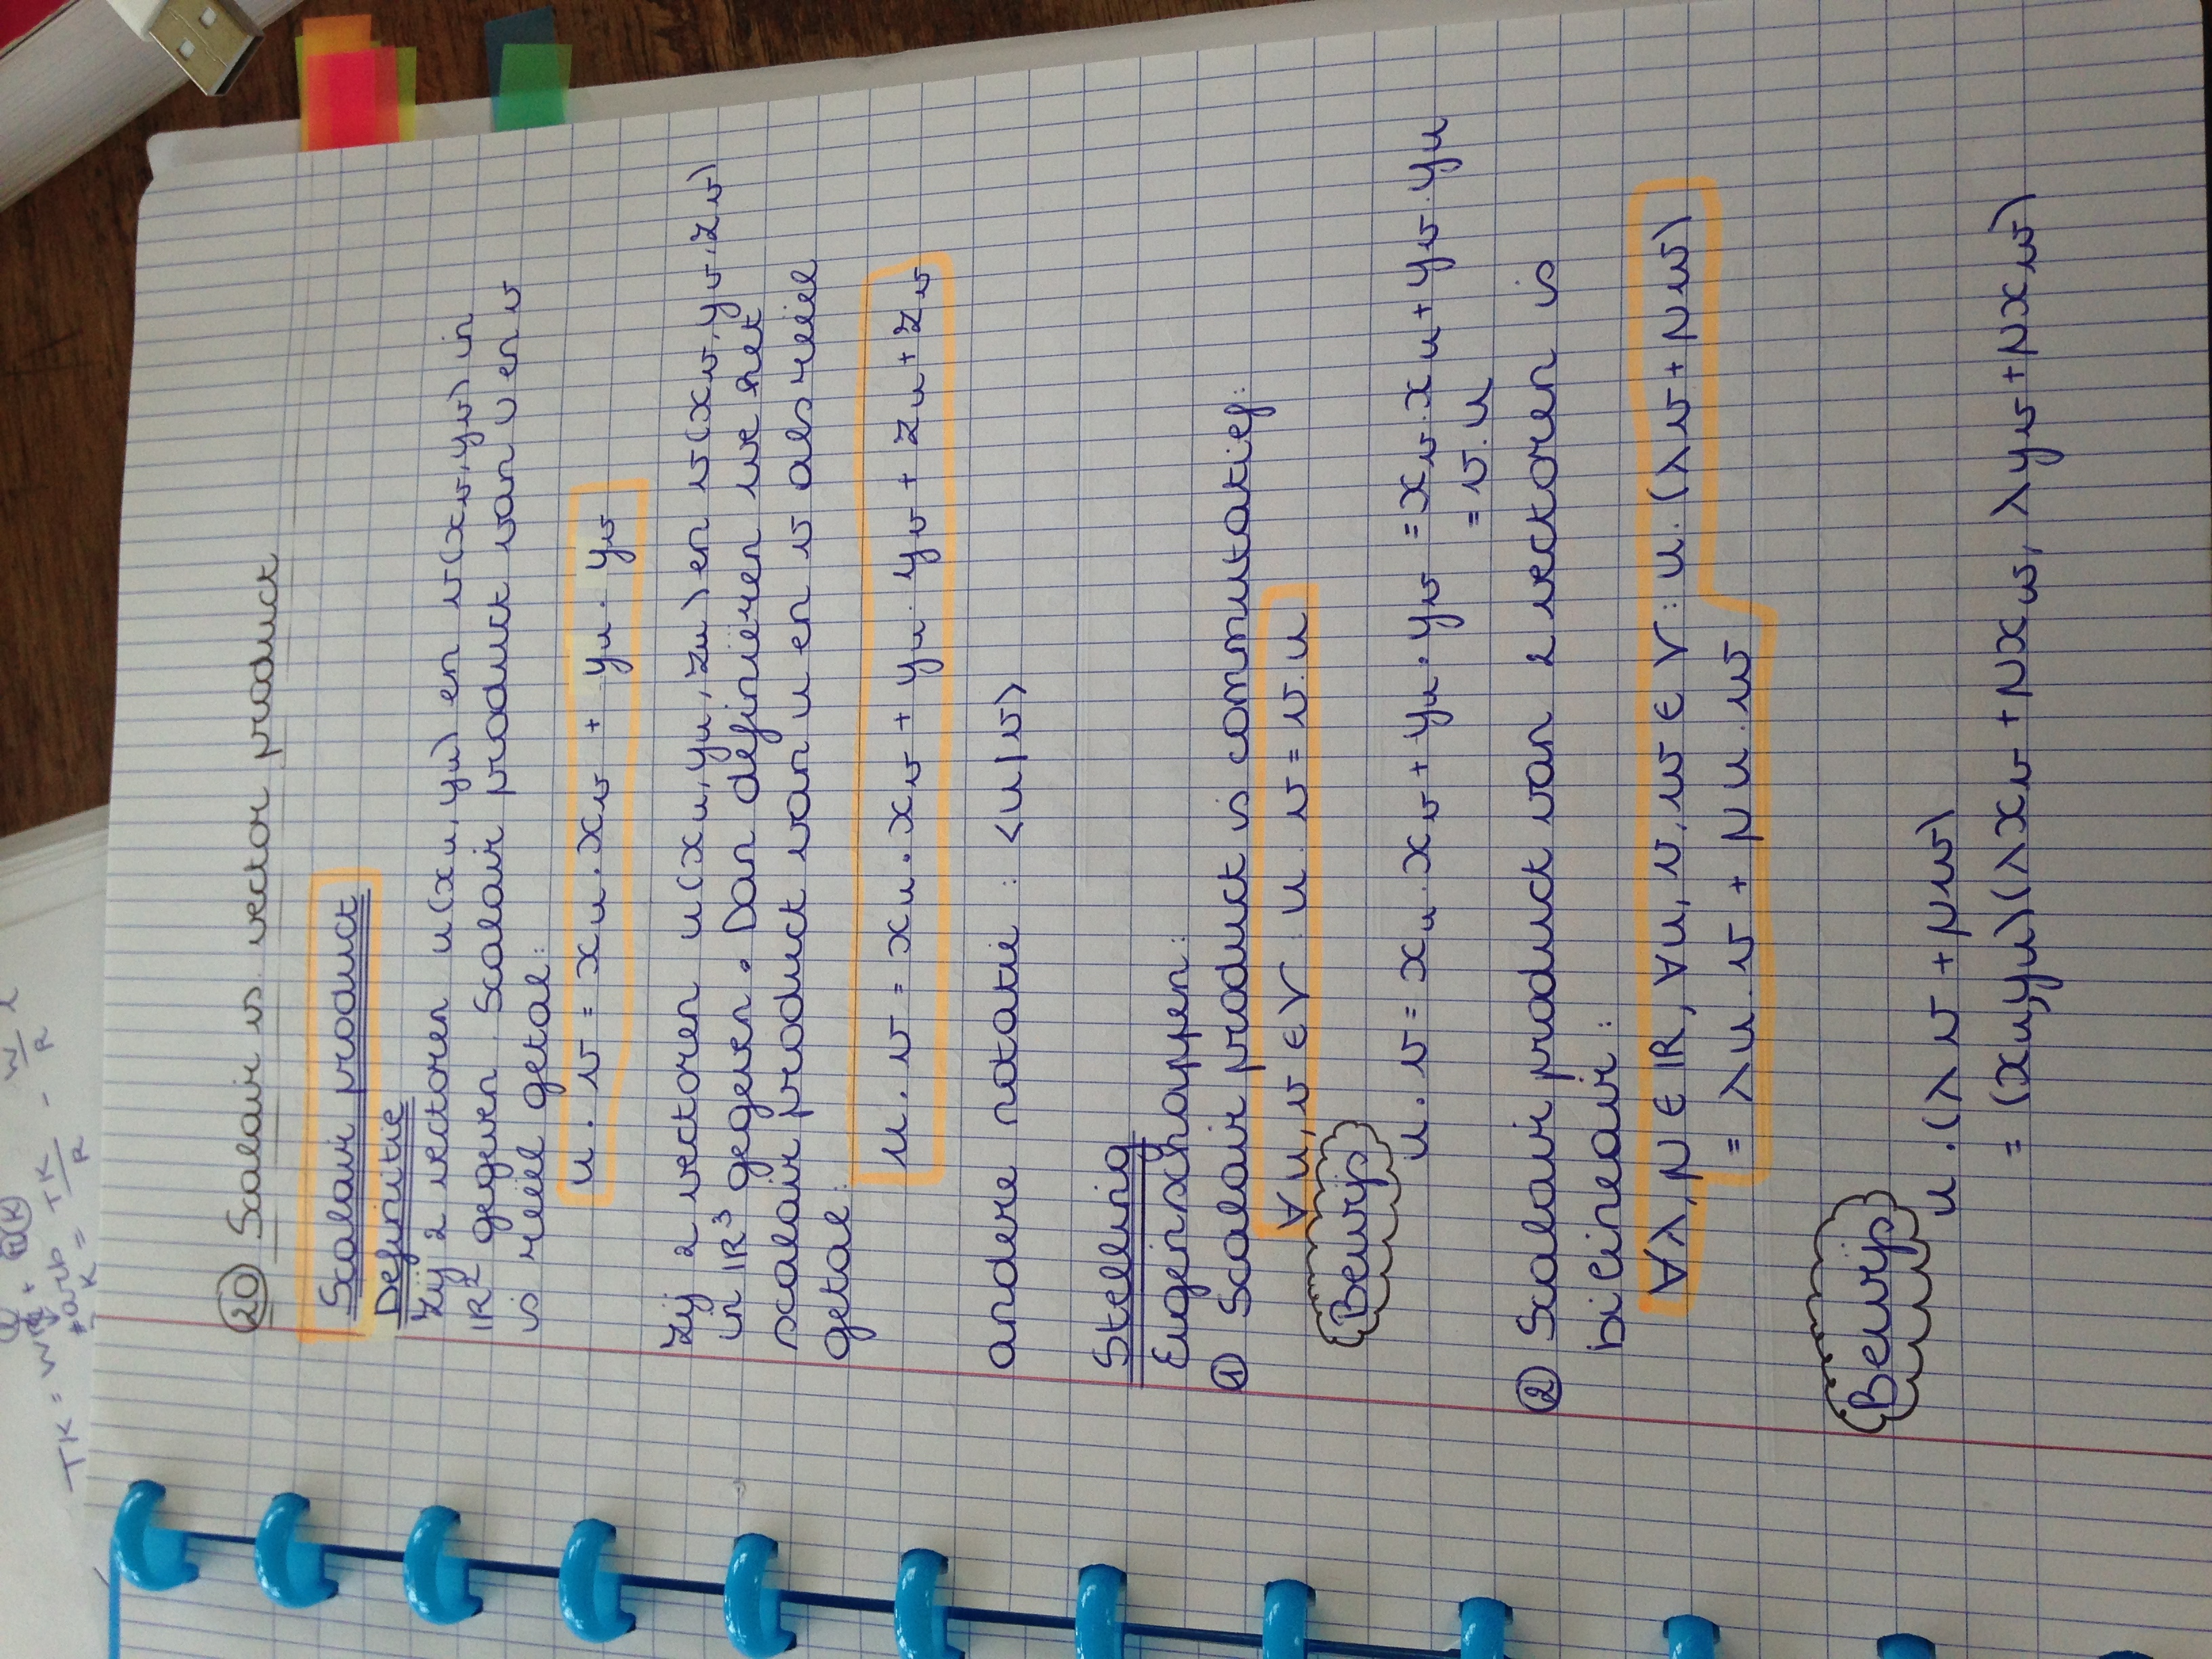 20 Scalair vs. vector product
Scalair product
Definitie
Zij 2 vectoren u(xu, yu) en v(xv, yv) in
IR² gegeven. Scalair product van u en v
is reëel getal:
u . v = xu . xv + yu . yv
Zij 2 vectoren u(xu, yu, zu) en v(xv, yv, zv)
in IR³ gegeven. Dan definiëren we het
scalair product van u en v als reëel
getal:
u . v = xu . xv + yu . yv + zu + zv
andere notatie : <u|v>
Stelling
Eigenschappen:
① Scalair product is commutatief:
∀u, v ∈ V : u . v = v . u
Bewijs
u . v = xu . xv + yu . yv = xv . xu + yv . yu
= v . u
② Scalair product van 2 vectoren is
bilineair:
∀λ, μ ∈ IR, ∀u, v, w ∈ V : u . (λv + μw)
= λu . v + μu . w
Bewijs
u . (λv + μw)
= (xu, yu)(λxv + μxw, λyv + μxw)
TK = W